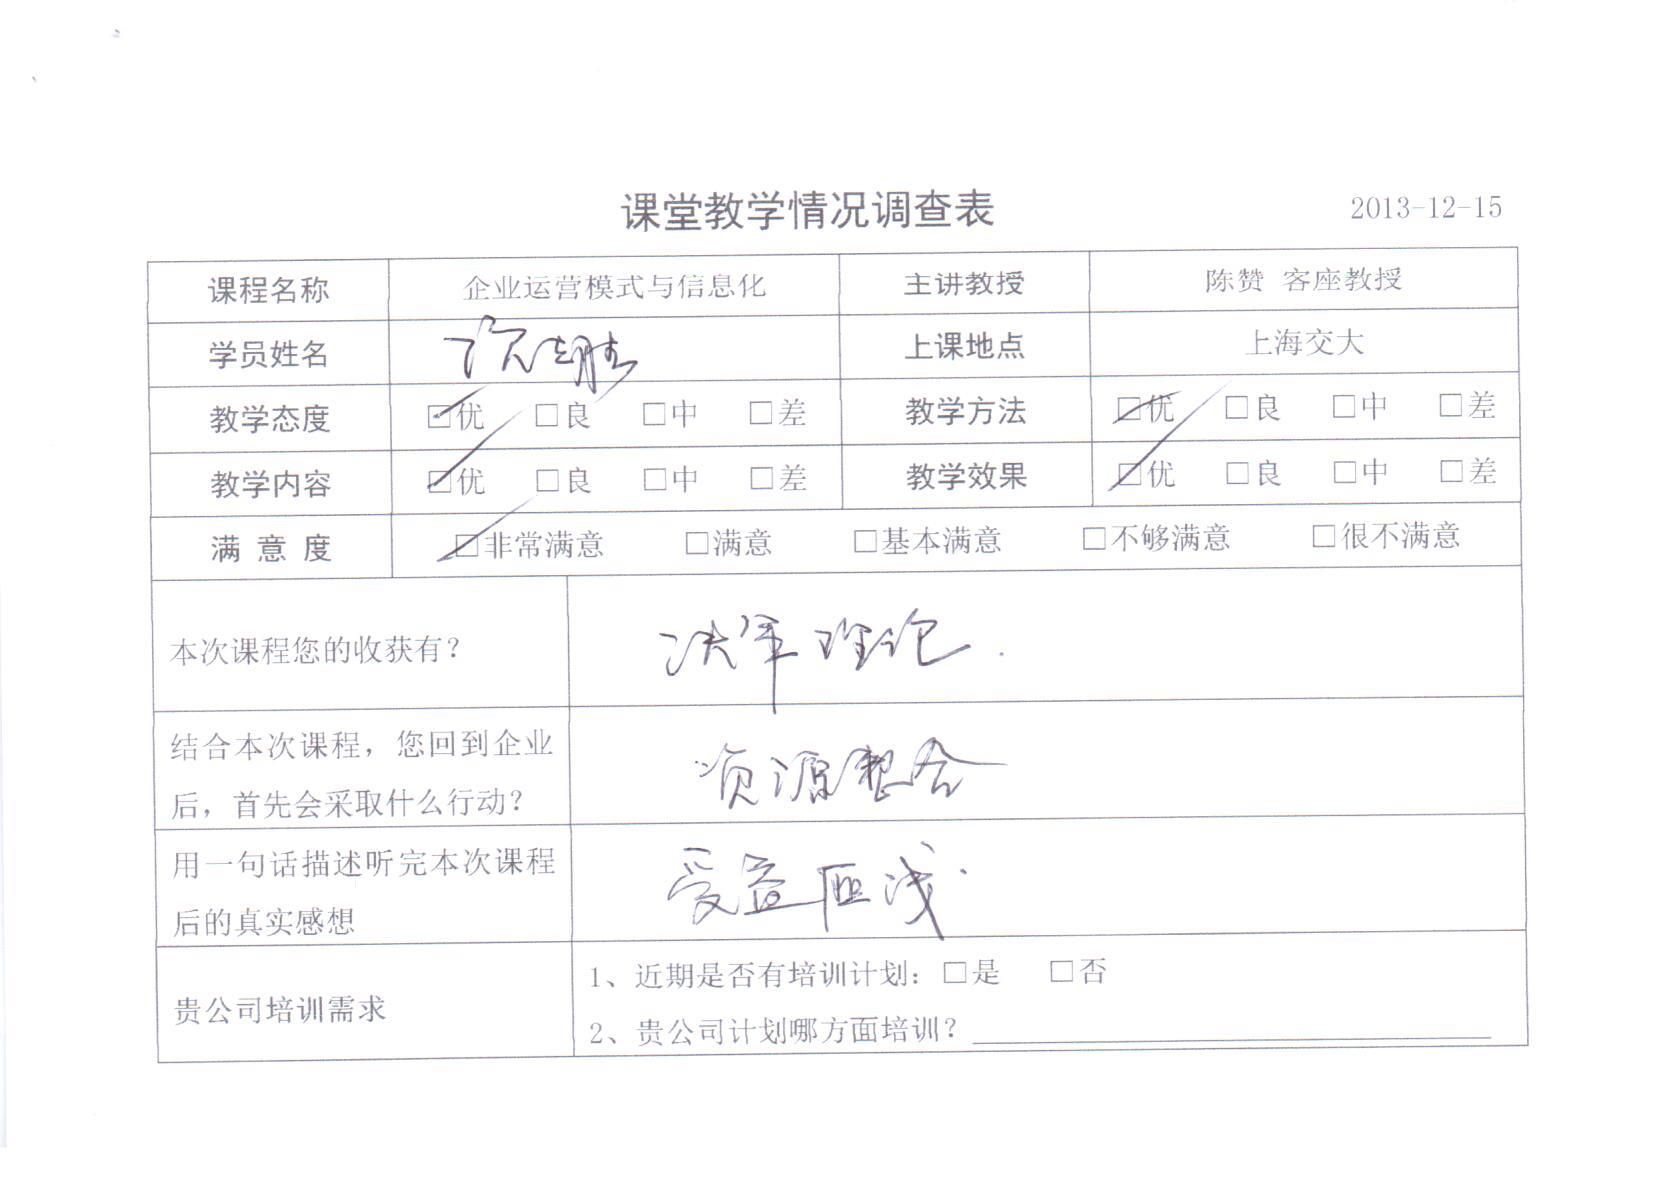 课堂教学情况调查表 2013-12-15
课程名称 企业运营模式与信息化 主讲教授 陈赞 客座教授
学员姓名 上课地点 上海交大
教学态度 ☑优 □良 □中 □差 教学方法 ☑优 □良 □中 □差
教学内容 ☑优 □良 □中 □差 教学效果 ☑优 □良 □中 □差
满 意 度 ☑非常满意 □满意 □基本满意 □不够满意 □很不满意
本次课程您的收获有? 理论.
结合本次课程，您回到企业
后，首先会采取什么行动? 资源整合
用一句话描述听完本次课程
后的真实感想 受益匪浅.
贵公司培训需求
1、近期是否有培训计划: □是 □否
2、贵公司计划哪方面培训?